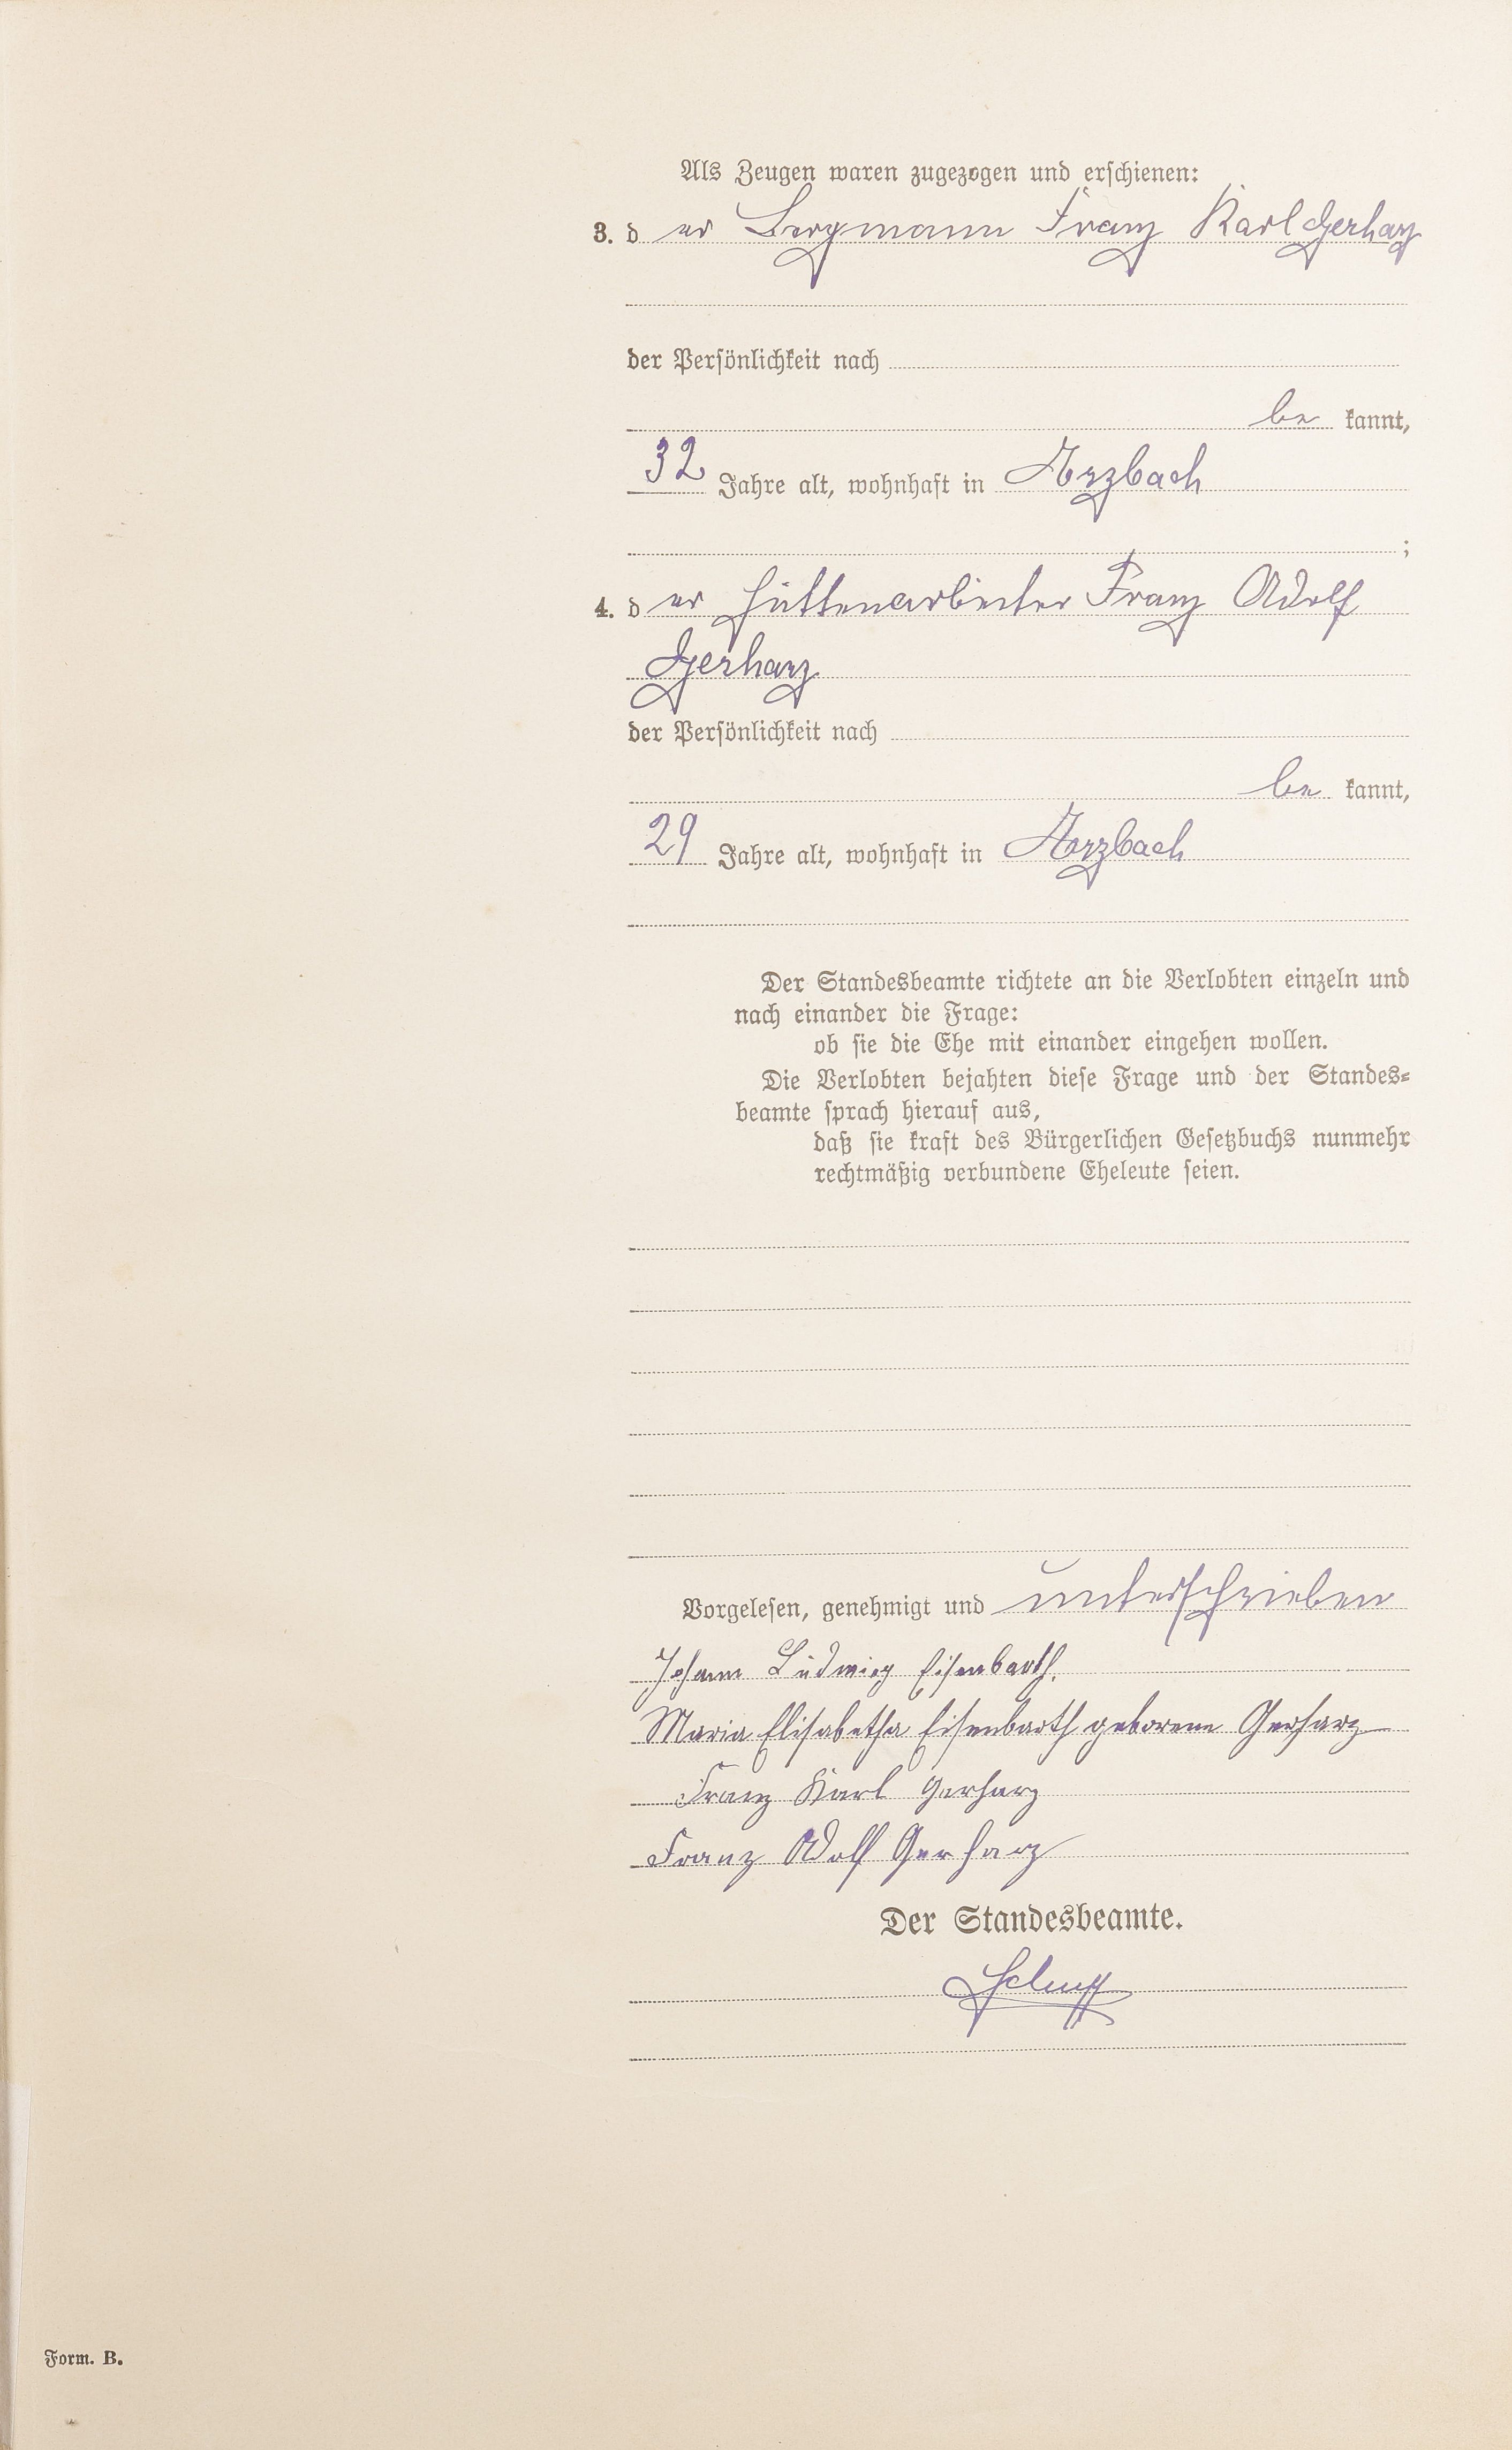 Als Zeugen waren zugezogen und erschienen:
3. der Bergmann Franz Karl Gerharz
der Persönlichkeit nach
be kannt,
32 Jahre alt, wohnhaft in Arzbach
;
4. der Hüttenarbeiter Franz Adolf
Gerharz
der Persönlichkeit nach
be kannt,
29 Jahre alt, wohnhaft in Arzbach
Der Standesbeamte richtete an die Verlobten einzeln und
nach einander die Frage:
ob sie die Ehe mit einander eingehen wollen.
Die Verlobten bejahten diese Frage und der Standes-
beamte sprach hierauf aus,
daß sie kraft des Bürgerlichen Gesetzbuchs nunmehr
rechtmäßig verbundene Eheleute seien.
Vorgelesen, genehmigt und unterschrieben
Johann Ludwig Eisenbarth.
Maria Elisabetha Eisenbarth geborene Gerharz
Franz Karl Gerharz
Franz Adolf Gerharz
Der Standesbeamte.
Form. B.